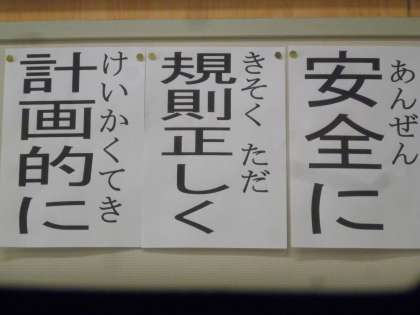 安全に
あんぜん
規則正しく
きそく ただ
計画的に
けいかくてき